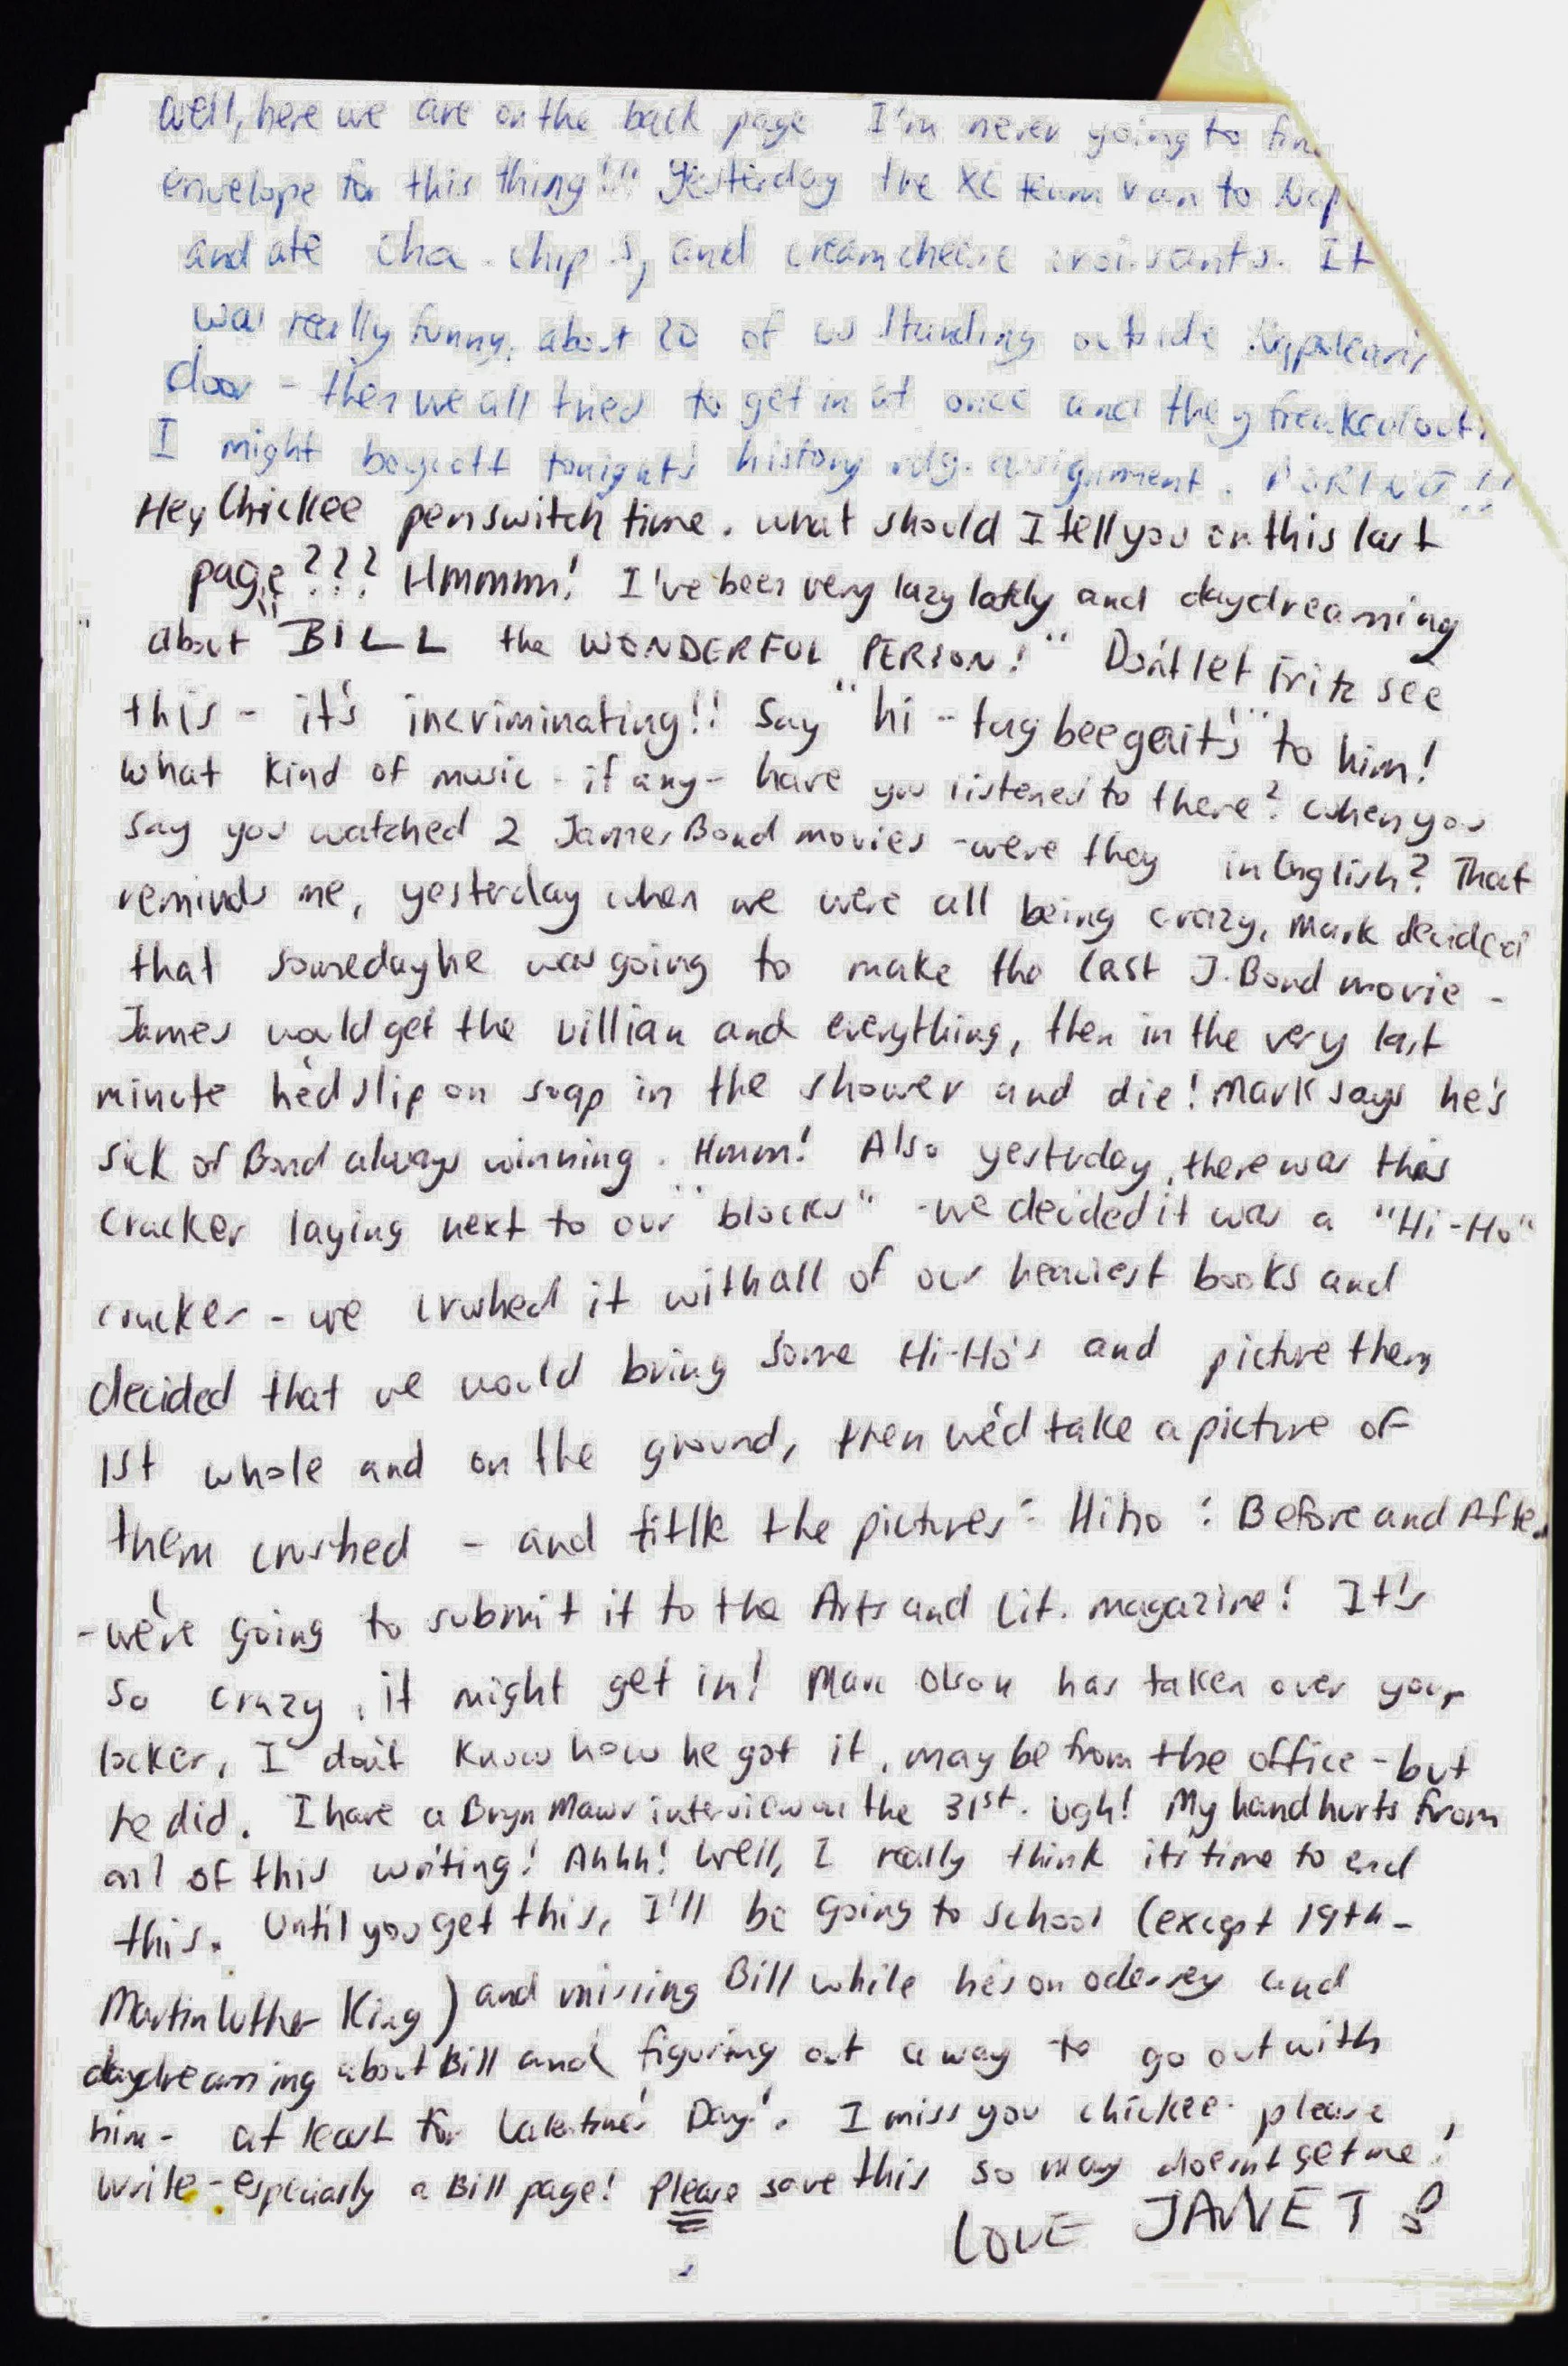 Well, here we are on the back page I'm never going to
envelope for this thing!!! Yesterday the XC team ran to
and ate cho. chip's, and cream cheese croissants. It
was really funny, about 20 of us standing outside
door - then we all tried to get in at once and they freaked out!
I might boycott tonight's history rdg. assignment.
Hey Chickee pen switch time. What should I tell you on this last
page??? Hmmmm! I've been very lazy lately and daydreaming
about "BILL the WONDERFUL PERSON!" Don't let Fritz see
this - it's incriminating!! Say "hi - to him!
What kind of music - if any - have you listened to there? When you
say you watched 2 James Bond movies - were they in English? That
reminds me, yesterday when we were all being crazy, Mark decided
that someday he was going to make the last J. Bond movie -
James would get the villian and everything, then in the very last
minute he'd slip on soap in the shower and die! Mark says he's
sick of Bond always winning. Hmm! Also yesterday, there was this
cracker laying next to our "blocks" - we decided it was a "Hi-Ho"
cracker - we crushed it with all of our heaviest books and
decided that we would bring some Hi-Ho's and picture them
1st whole and on the ground, then we'd take a picture of
them crushed - and titlle the pictures: Hiho : Before and After
- we're going to submit it to the Arts and Lit. magazine! It's
so crazy, it might get in! Marc Olson has taken over your
locker, I don't know how he got it, maybe from the office - but
he did. I have a Bryn Mawr interview on the 31st. Ugh! My hand hurts from
all of this writing! Ahhh! Well, I really think it's time to end
this. Until you get this, I'll be going to school (except 19th -
Martin Luther King) and missing Bill while he's on odessey and
daydreaming about Bill and figuring out a way to go out with
him - at least for Valentine's Day!. I miss you chickee. please
write - especially a Bill page! Please save this so may doesn't get me!
LOVE JANET